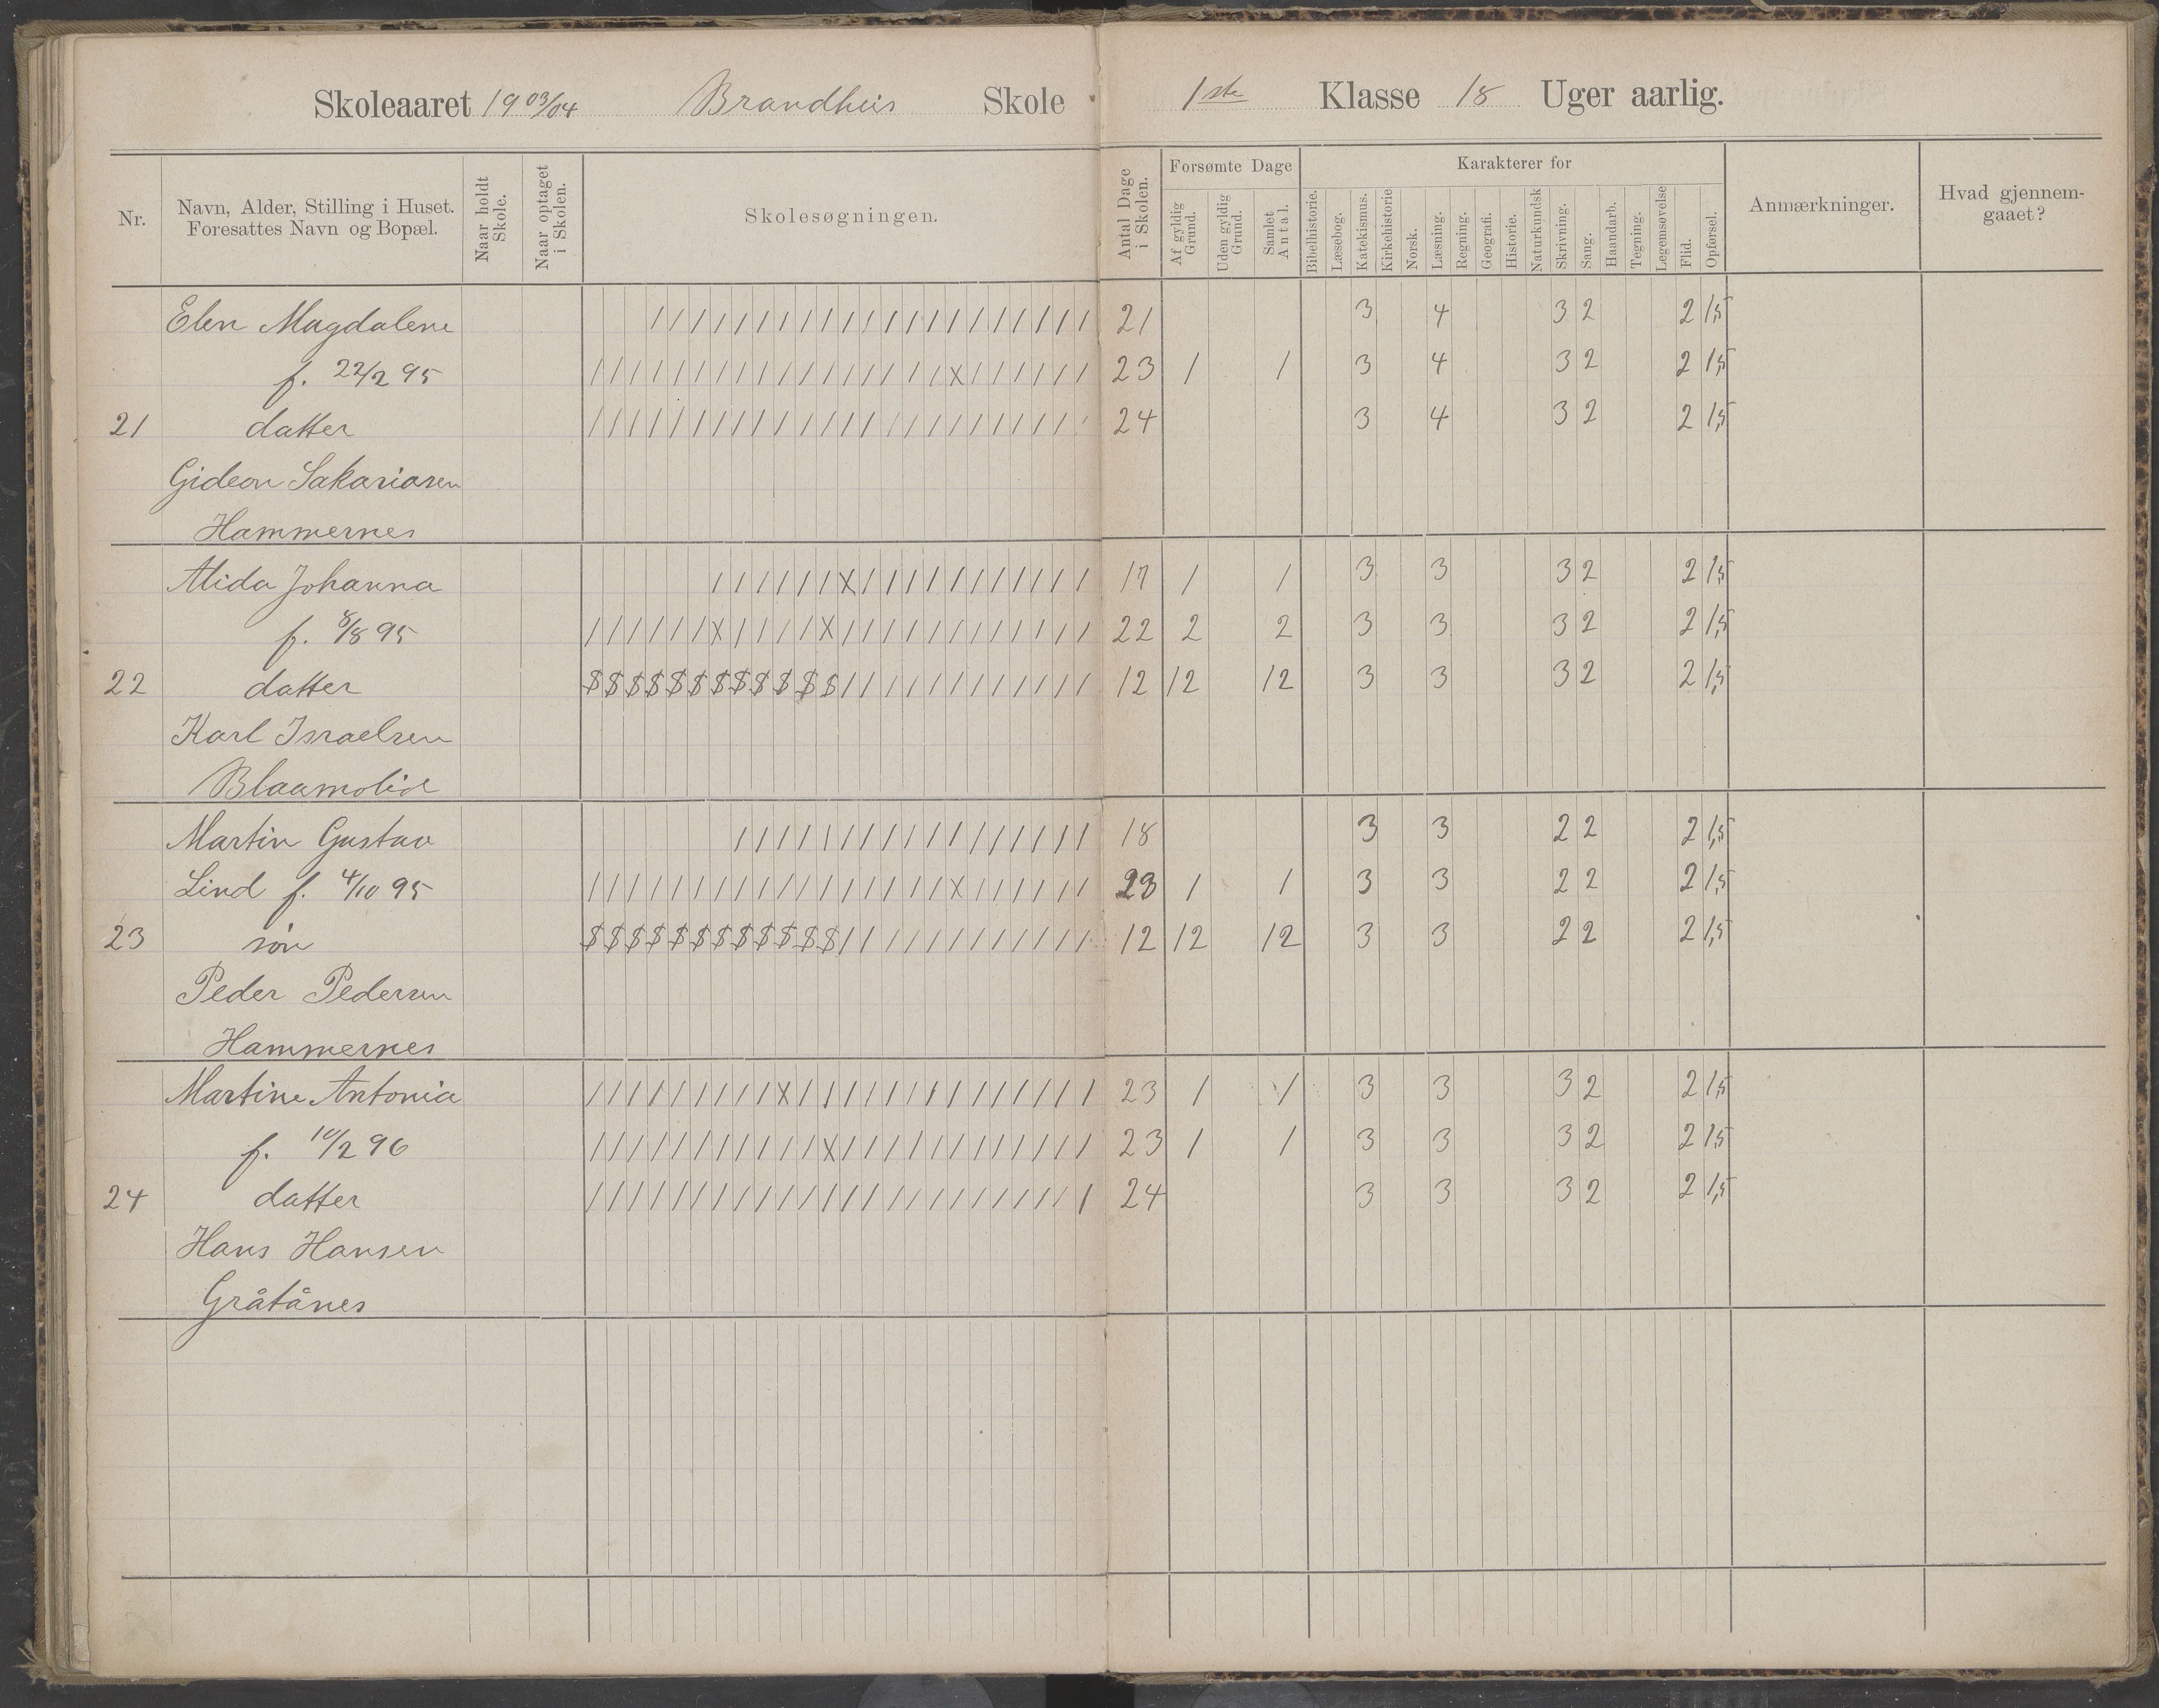 Skoleaaret 1903/04 Brandhus Skole 1ste Klasse 18 Uger aarlig.
Nr.
Navn, Alder, Stilling i Huset.
Foresattes Navn og Bopæl.
Naar holdt
Skole.
Naar optaget
i Skolen.
Skolesøgningen.
Antal Dage
i Skolen.
Forsømte Dage
Af gyldig
Grund.
Uden gyldig
Grund.
Samlet
Antal.
Karakterer for
Bibelhistorie.
Læsebog.
Katekismus.
Kirkehistorie
Norsk.
Læsning.
Regning.
Geografi.
Historie.
Naturkundsk
Skrivning.
Sang.
Haandarb.
Tegning.
Legemsøvelse
Flid.
Opførsel.
Anmærkninger.
Hvad gjennem-
gaaet?
Elen Magdalene / / / / / / / / / / / / / / / / / / / / / 21 3 4 3 2 2 1,5
f. 22/2 95 / / / / / / / / / / / / / / / / / x / / / / / / 23 1 1 3 4 3 2 2 1,5
21 datter / / / / / / / / / / / / / / / / / / / / / / / / 24 3 4 3 2 2 1,5
Gideon Sakariasen
Hammernes
Alida Johanna / / / / / / x / / / / / / / / / / / 17 1 1 3 3 3 2 2 1,5
f. 8/8 95 / / / / / / x / / / / x / / / / / / / / / / / / 22 2 2 3 3 3 2 2 1,5
22 datter $ $ $ $ $ $ $ $ $ $ $ $ / / / / / / / / / / / / 12 12 12 3 3 3 2 2 1,5
Karl Israelsen
Blaamolid
Martin Gustav / / / / / / / / / / / / / / / / / 18 3 3 2 2 2 1,5
Lind f. 4/10 95 / / / / / / / / / / / / / / / / / x / / / / / / 23 1 1 3 3 2 2 2 1,5
23 søn $ $ $ $ $ $ $ $ $ $ $ $ / / / / / / / / / / / / 12 12 12 3 3 2 2 2 1,5
Peder Pedersen
Hammernes
Martine Antonia / / / / / / / / / x / / / / / / / / / / / / / / 23 1 1 3 3 3 2 2 1,5
f. 10/2 96 / / / / / / / / / / / x / / / / / / / / / / / / 23 1 1 3 3 3 2 2 1,5
24 datter / / / / / / / / / / / / / / / / / / / / / / / / 24 3 3 3 2 2 1,5
Hans Hansen
Gråtånes